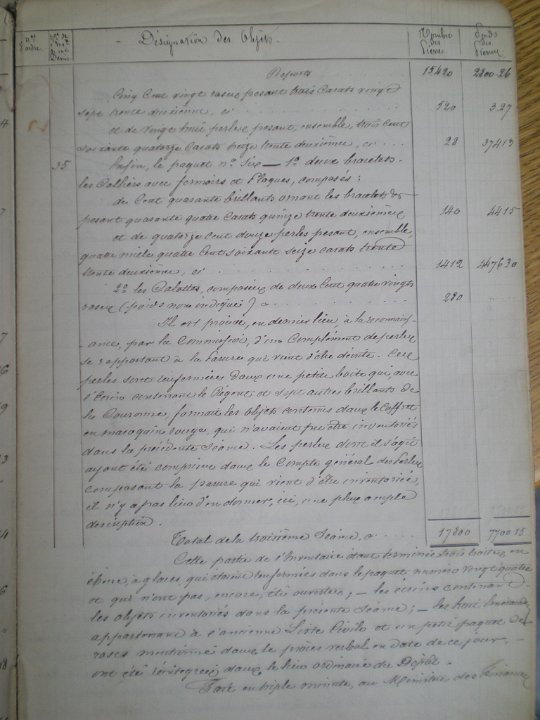 Désignation des Objets.
Nombre des Pierres
Poids des Pierres
Reports 15420 2800 26
Cinq Cent vingt roses pesant trois carats vingt
sept trente deuxième, ci 520 3.27
et de vingt huit perles pesant, ensemble, trois cent
soixante quatorze carats treize trente deuxième, ci 28 374 13
35. Enfin, le paquet no Six — 1o deux bracelets.
les Colliers avec fermoirs et Plaques, composés:
de Cent quarante brillants ornant les bracelets &
pesant quarante quatre carats quinze trente deuxièmes 140 44 15
et de quatorze cent douze perles pesant, ensemble,
quatre mille quatre Cent soixante seize carats trente
trente deuxième, ci 1412 4476 30
2o les Calottes, composées de deux Cent quatre vingts
roses (poids non indiqué) 280
Il est procédé, en dernier lieu, à la reconnaiss-
ance, par la Commission, d'un Complément de perles
se rapportant à la parure qui vient d'être décrite. Ces
perles sont renfermées dans une petite boîte qui, avec
l'Écrin contenant le Régent, et sept autres brillants de
la Couronne, formait les objets contenus dans le Coffret
en maroquin rouge, qui n'avaient pu être inventoriés
dans la précédente Séance. Les perles dont il s'agit
ayant été comprises dans le Compte général des Perles
composant la parure qui vient d'être inventoriée,
il n'y a pas lieu d'en donner, ici, une plus ample
description.
Total de la troisième Séance, 17800 7700 15
Cette partie de l'Inventaire étant terminée, trois boîtes, en
ébène, à glaces, qui étaient renfermées dans le paquet numéro vingt quatre
et qui n'ont pas, encore, été ouvertes; — les écrins contenant
les objets inventoriés dans la présente Séance; — les
appartenant à l'ancienne Liste Civile et un petit paquet de
roses mentionné dans le procès verbal en date de ce jour,
ont été réintégrés dans le lieu ordinaire du Dépôt.
Fait en triple minute, au Ministère des Finances